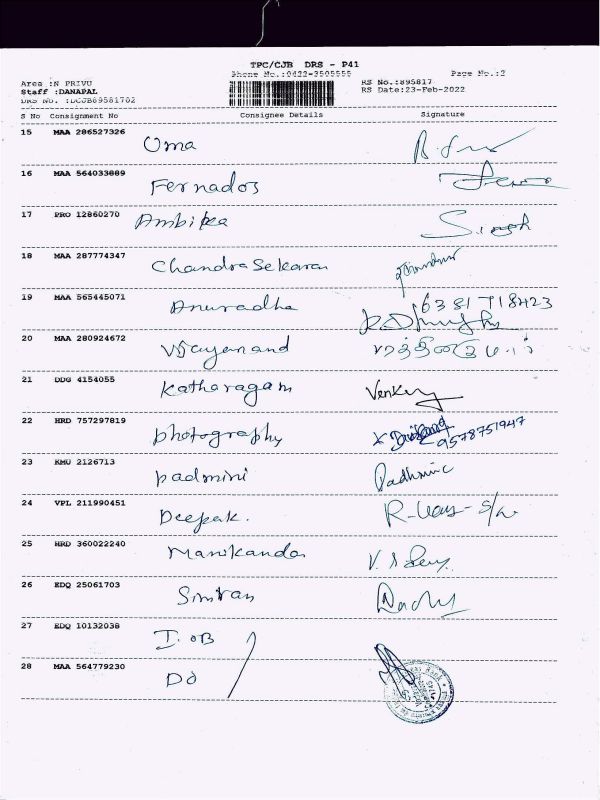 TPC/CJB DRS - P41
Phone No.:0422-3505555 Page No.:2
Area :N PRIVU RS No.:895817
Staff :DANAPAL RS Date:23-Feb-2022
DRS No. :DCJB89581702
S No Consignment No Consignee Details Signature
15 MAA 286527326 Uma
16 MAA 564033889 Fernados
17 PRO 12860270 Ambika Singh
18 MAA 287774347 Chandrasekaran
19 MAA 565445071 Anuradha 6381718423
20 MAA 280924672 Vijayanand
21 DDG 4154055 Katharagam Venky
22 HRD 757297819 photography 9578751947
23 KMU 2126713 padmini Padhmini
24 VPL 211990451 Deepak.
25 HRD 360022240 Manikandan
26 EDQ 25061703 Simran
27 EDQ 10132038 I.OB
28 MAA 564779230 DO